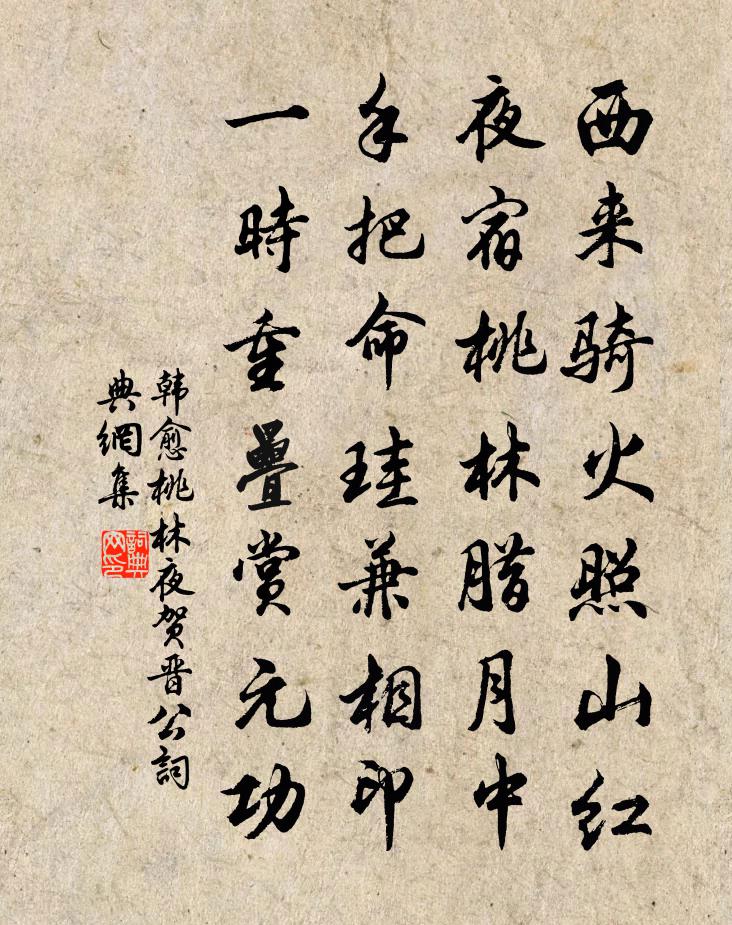 西来骑火照山红
夜宿桃林腊月中
手把命珪兼相印
一時重疊赏元功
韩愈桃林夜贺晋公詞
典網集
詞典
网印